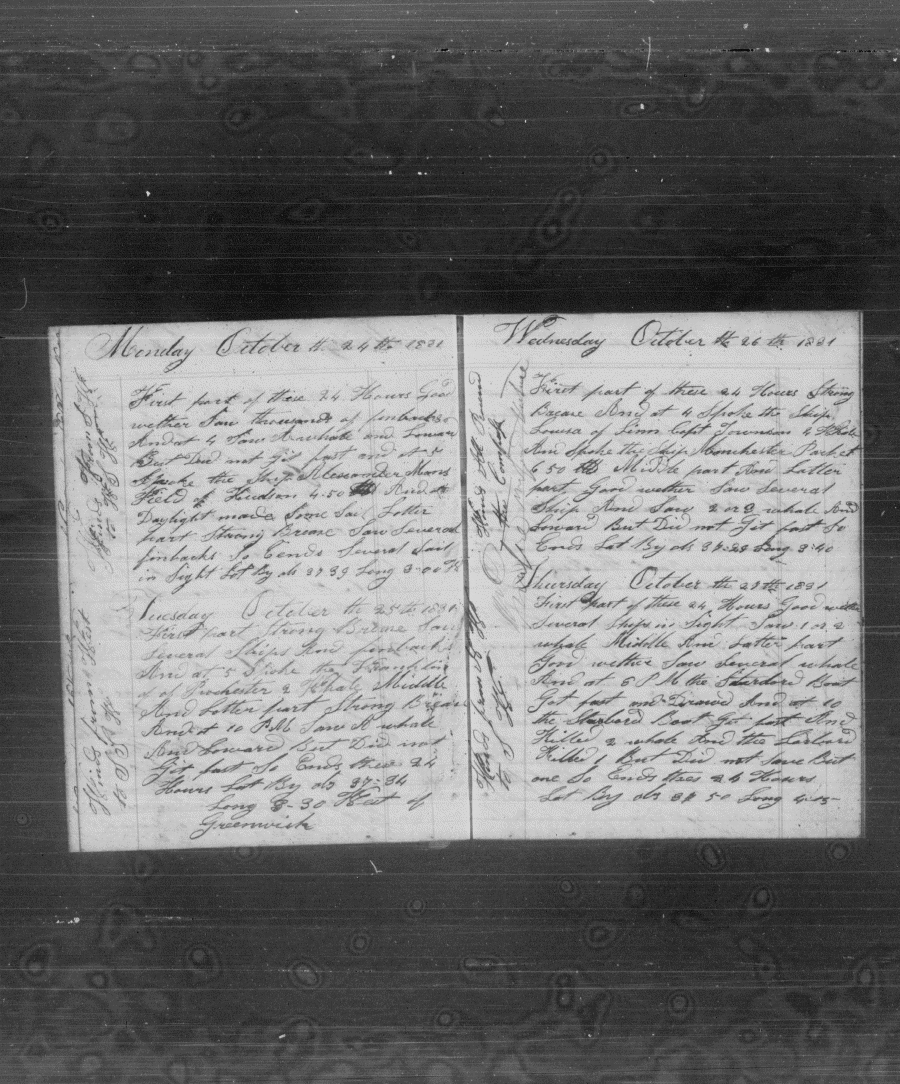 Monday October th 24th 1831
Winds from S W
to W S W
First part of these 24 Hours Good
wether Saw thousands of finbacks
And at 4 Saw A whale and Lowar
But Did not Git fast and at 5
Spoke the Ship Alexander Mans
Field of Hudson 4-50 And at
Daylight made Some Sail Latter
part Strong Breme Saw Several
finbacks So Ends Several Sail
in Sight Lat By obs 37 39 Long 3-00 W
Tuesday October th 25th 1831
Winds from West
to S W
First part Strong Breme Saw
Several Ships And finbacks
And at 5 Spoke the Franklin
of Rochester 2 Whale Middle
And Latter part Strong Breme
And at 10 P.M Saw A whale
And Lowared But Did not
Git fast So Ends these 24
Hours Lat By obs 37-34
Long 3-30 West of
Greenwich
Wednesday October th 26th 1831
Winds All Round
the Compass
First part of these 24 Hours Strong
Breaze And at 4 Spoke the Ship
Louisa of Capt Townsan 4 Whale
And Spoke the Ship Manchester Packet
6 50 Middle part And Latter
part Good wether Saw Several
Ship And Saw 2 or 3 whale And
Lowared But Did not Git fast So
Ends Lat By obs Long 3-40
Thursday October th 27th 1831
Winds from S W
to S W
First Part of these 24 Hours Good wether
Several Ships in Sight Saw 1 or 2
whale Middle And Latter part
Good wether Saw Several whale
And at 6 P M the Starbord Boat
Got fast and Drawed And at 10
the Starbord Boat Got fast And
Killed 2 whale And the Larbord
Killed 1 But Did not Save But
one So Ends thees 24 Hours
Lat By obs 37 50 Long